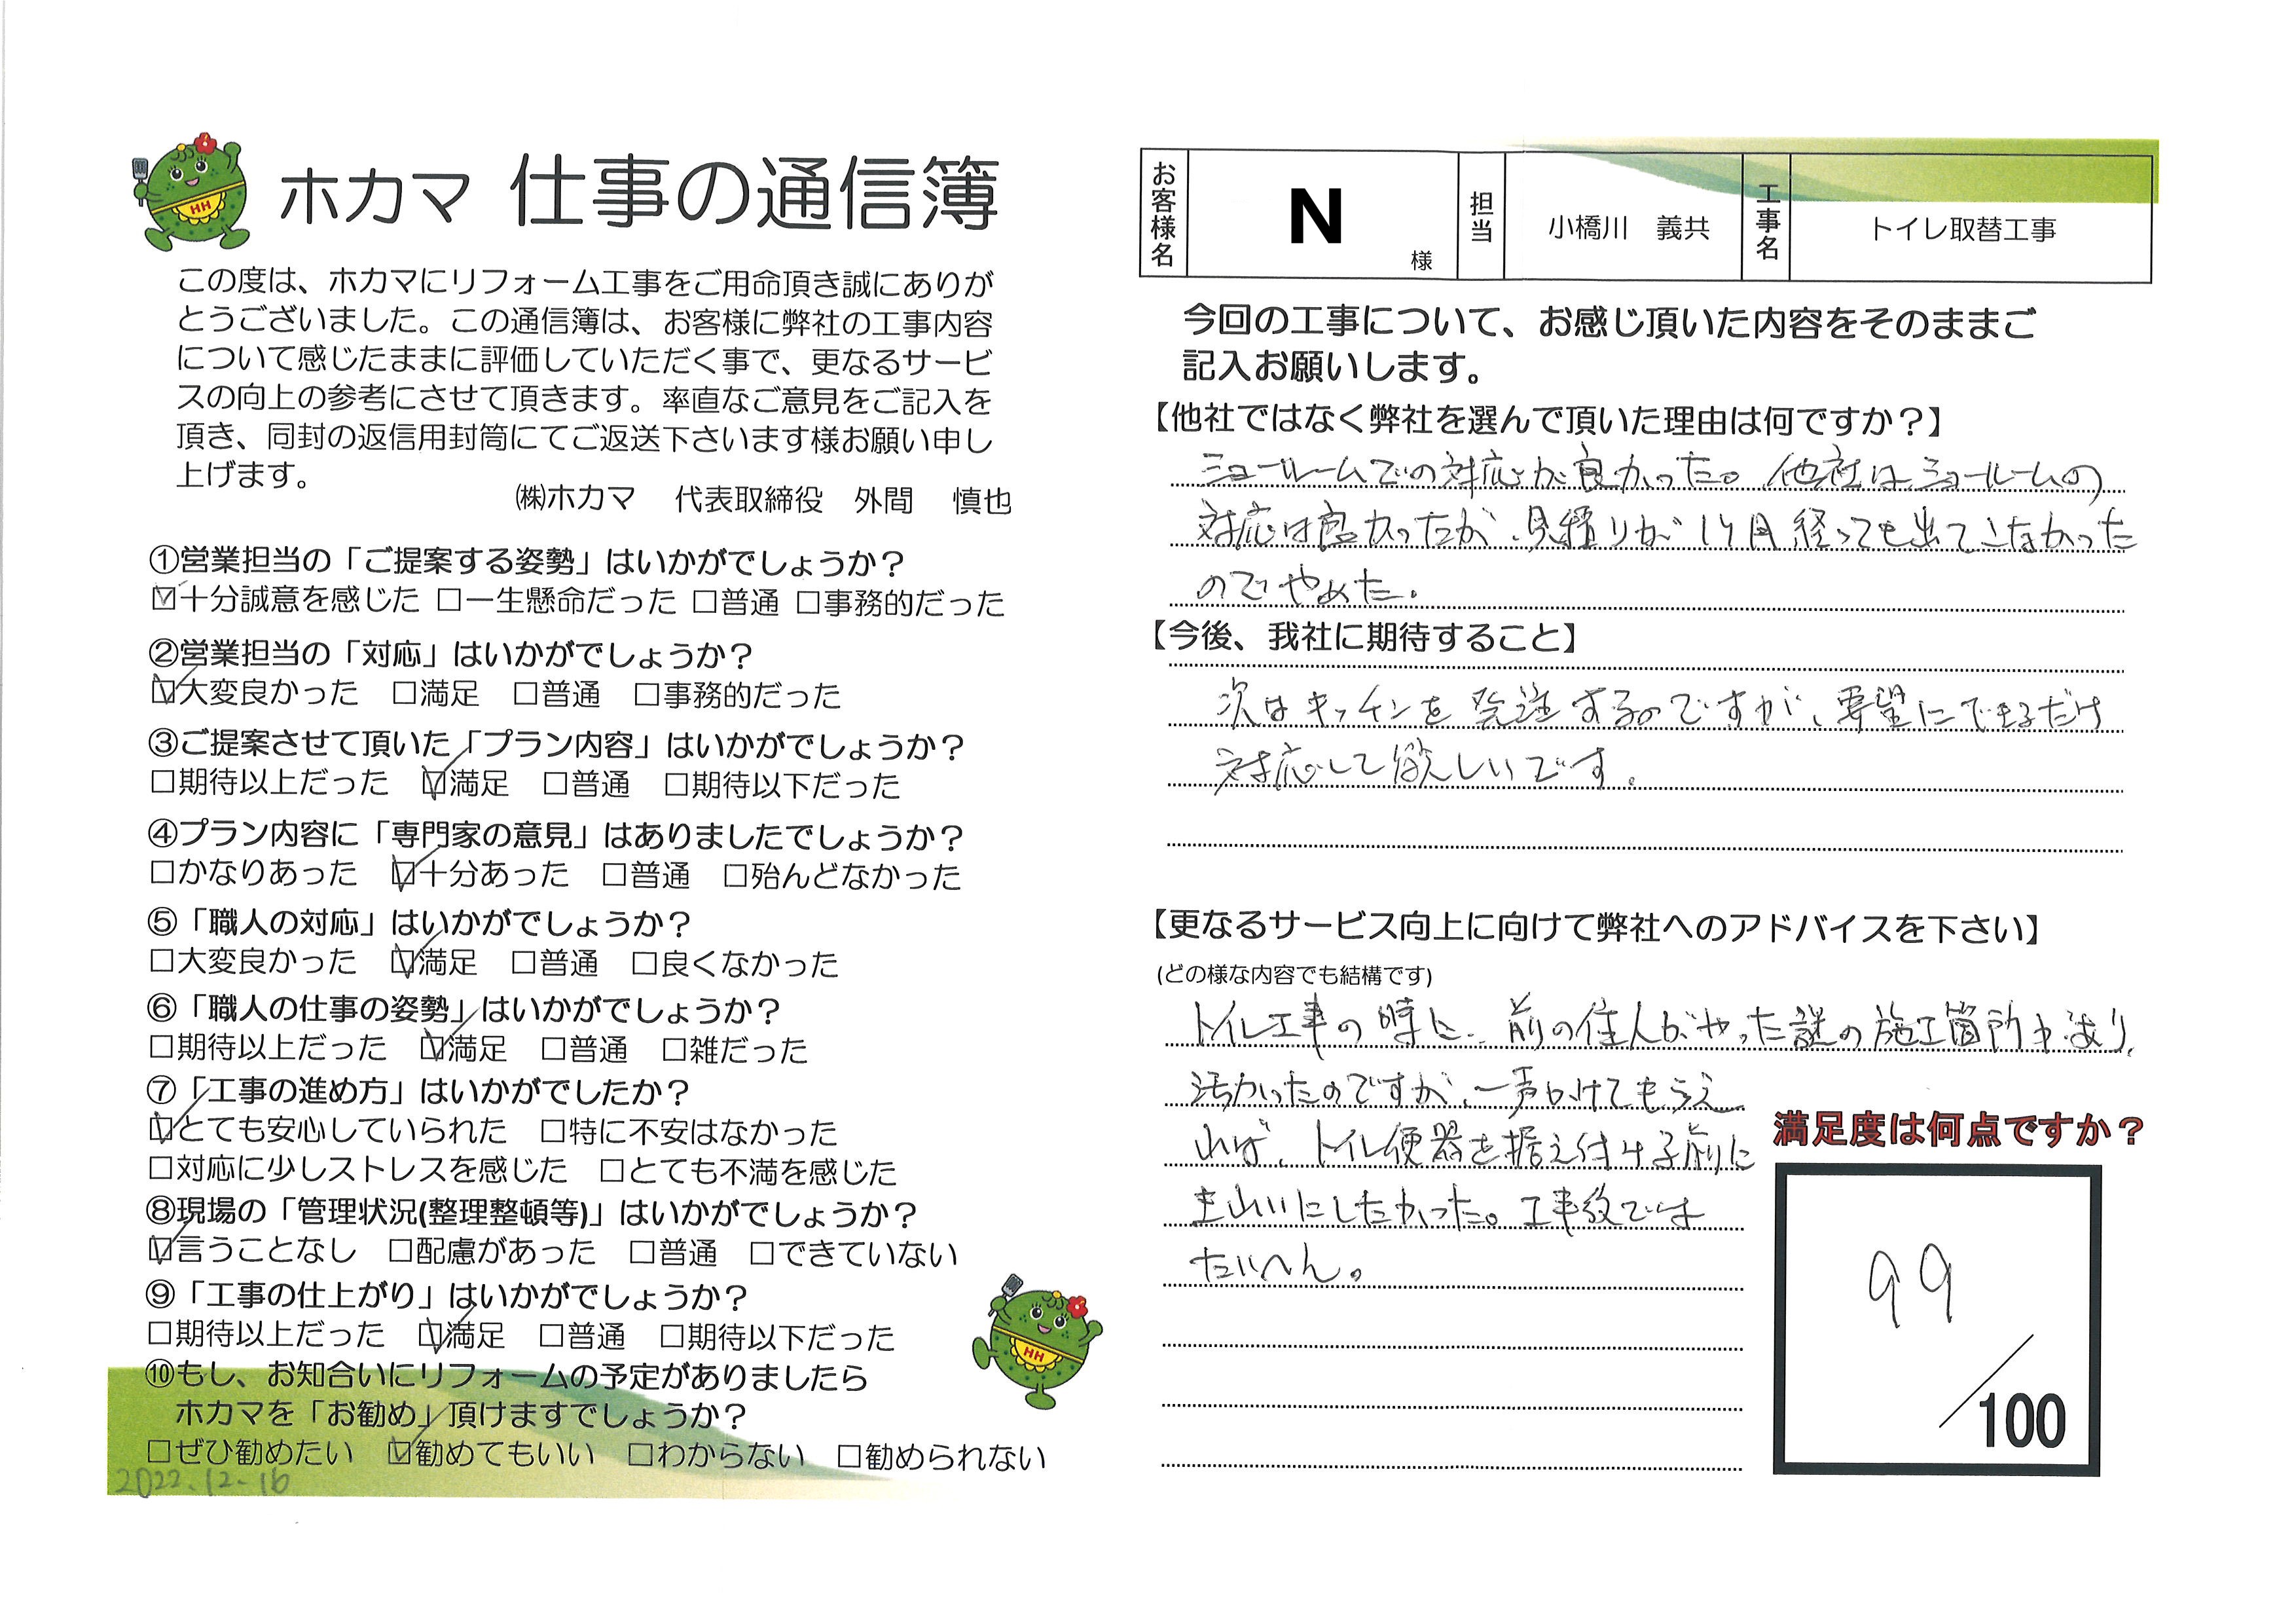 ホカマ 仕事の通信簿
この度は、ホカマにリフォーム工事をご用命頂き誠にありが
とうございました。この通信簿は、お客様に弊社の工事内容
について感じたままに評価していただく事で、更なるサービ
スの向上の参考にさせて頂きます。率直なご意見をご記入を
頂き、同封の返信用封筒にてご返送下さいます様お願い申し
上げます。
㈱ホカマ 代表取締役 外間 慎也
①営業担当の「ご提案する姿勢」はいかがでしょうか?
☑十分誠意を感じた □一生懸命だった □普通 □事務的だった
②営業担当の「対応」はいかがでしょうか?
☑大変良かった □満足 □普通 □事務的だった
③ご提案させて頂いた「プラン内容」はいかがでしょうか?
□期待以上だった ☑満足 □普通 □期待以下だった
④プラン内容に「専門家の意見」はありましたでしょうか?
□かなりあった ☑十分あった □普通 □殆んどなかった
⑤「職人の対応」はいかがでしょうか?
□大変良かった ☑満足 □普通 □良くなかった
⑥「職人の仕事の姿勢」はいかがでしょうか?
□期待以上だった ☑満足 □普通 □雑だった
⑦「工事の進め方」はいかがでしたか?
☑とても安心していられた □特に不安はなかった
□対応に少しストレスを感じた □とても不満を感じた
⑧現場の「管理状況(整理整頓等)」はいかがでしょうか?
☑言うことなし □配慮があった □普通 □できていない
⑨「工事の仕上がり」はいかがでしょうか?
□期待以上だった ☑満足 □普通 □期待以下だった
⑩もし、お知合いにリフォームの予定がありましたら
ホカマを「お勧め」頂けますでしょうか?
□ぜひ勧めたい ☑勧めてもいい □わからない □勧められない
2022.12.16
HH
HH
お客様名 N 様 担当 小橋川 義共 工事名 トイレ取替工事
今回の工事について、お感じ頂いた内容をそのままご
記入お願いします。
【他社ではなく弊社を選んで頂いた理由は何ですか?】
ショールームでの対応が良かった。他社はショールームの
対応は良かったが、見積りが1ヶ月経っても出てこなかった
のでやめた。
【今後、我社に期待すること】
次はキッチンを発注するのですが、要望にできるだけ
対応して欲しいです。
【更なるサービス向上に向けて弊社へのアドバイスを下さい】
(どの様な内容でも結構です)
トイレ工事の時に、前の住人がやった謎の施工箇所があり、
汚かったのですが、一声かけてもらえ
れば、トイレ便器を据え付ける前に
きれいにしたかった。工事後では
たいへん。
満足度は何点ですか?
99
/100